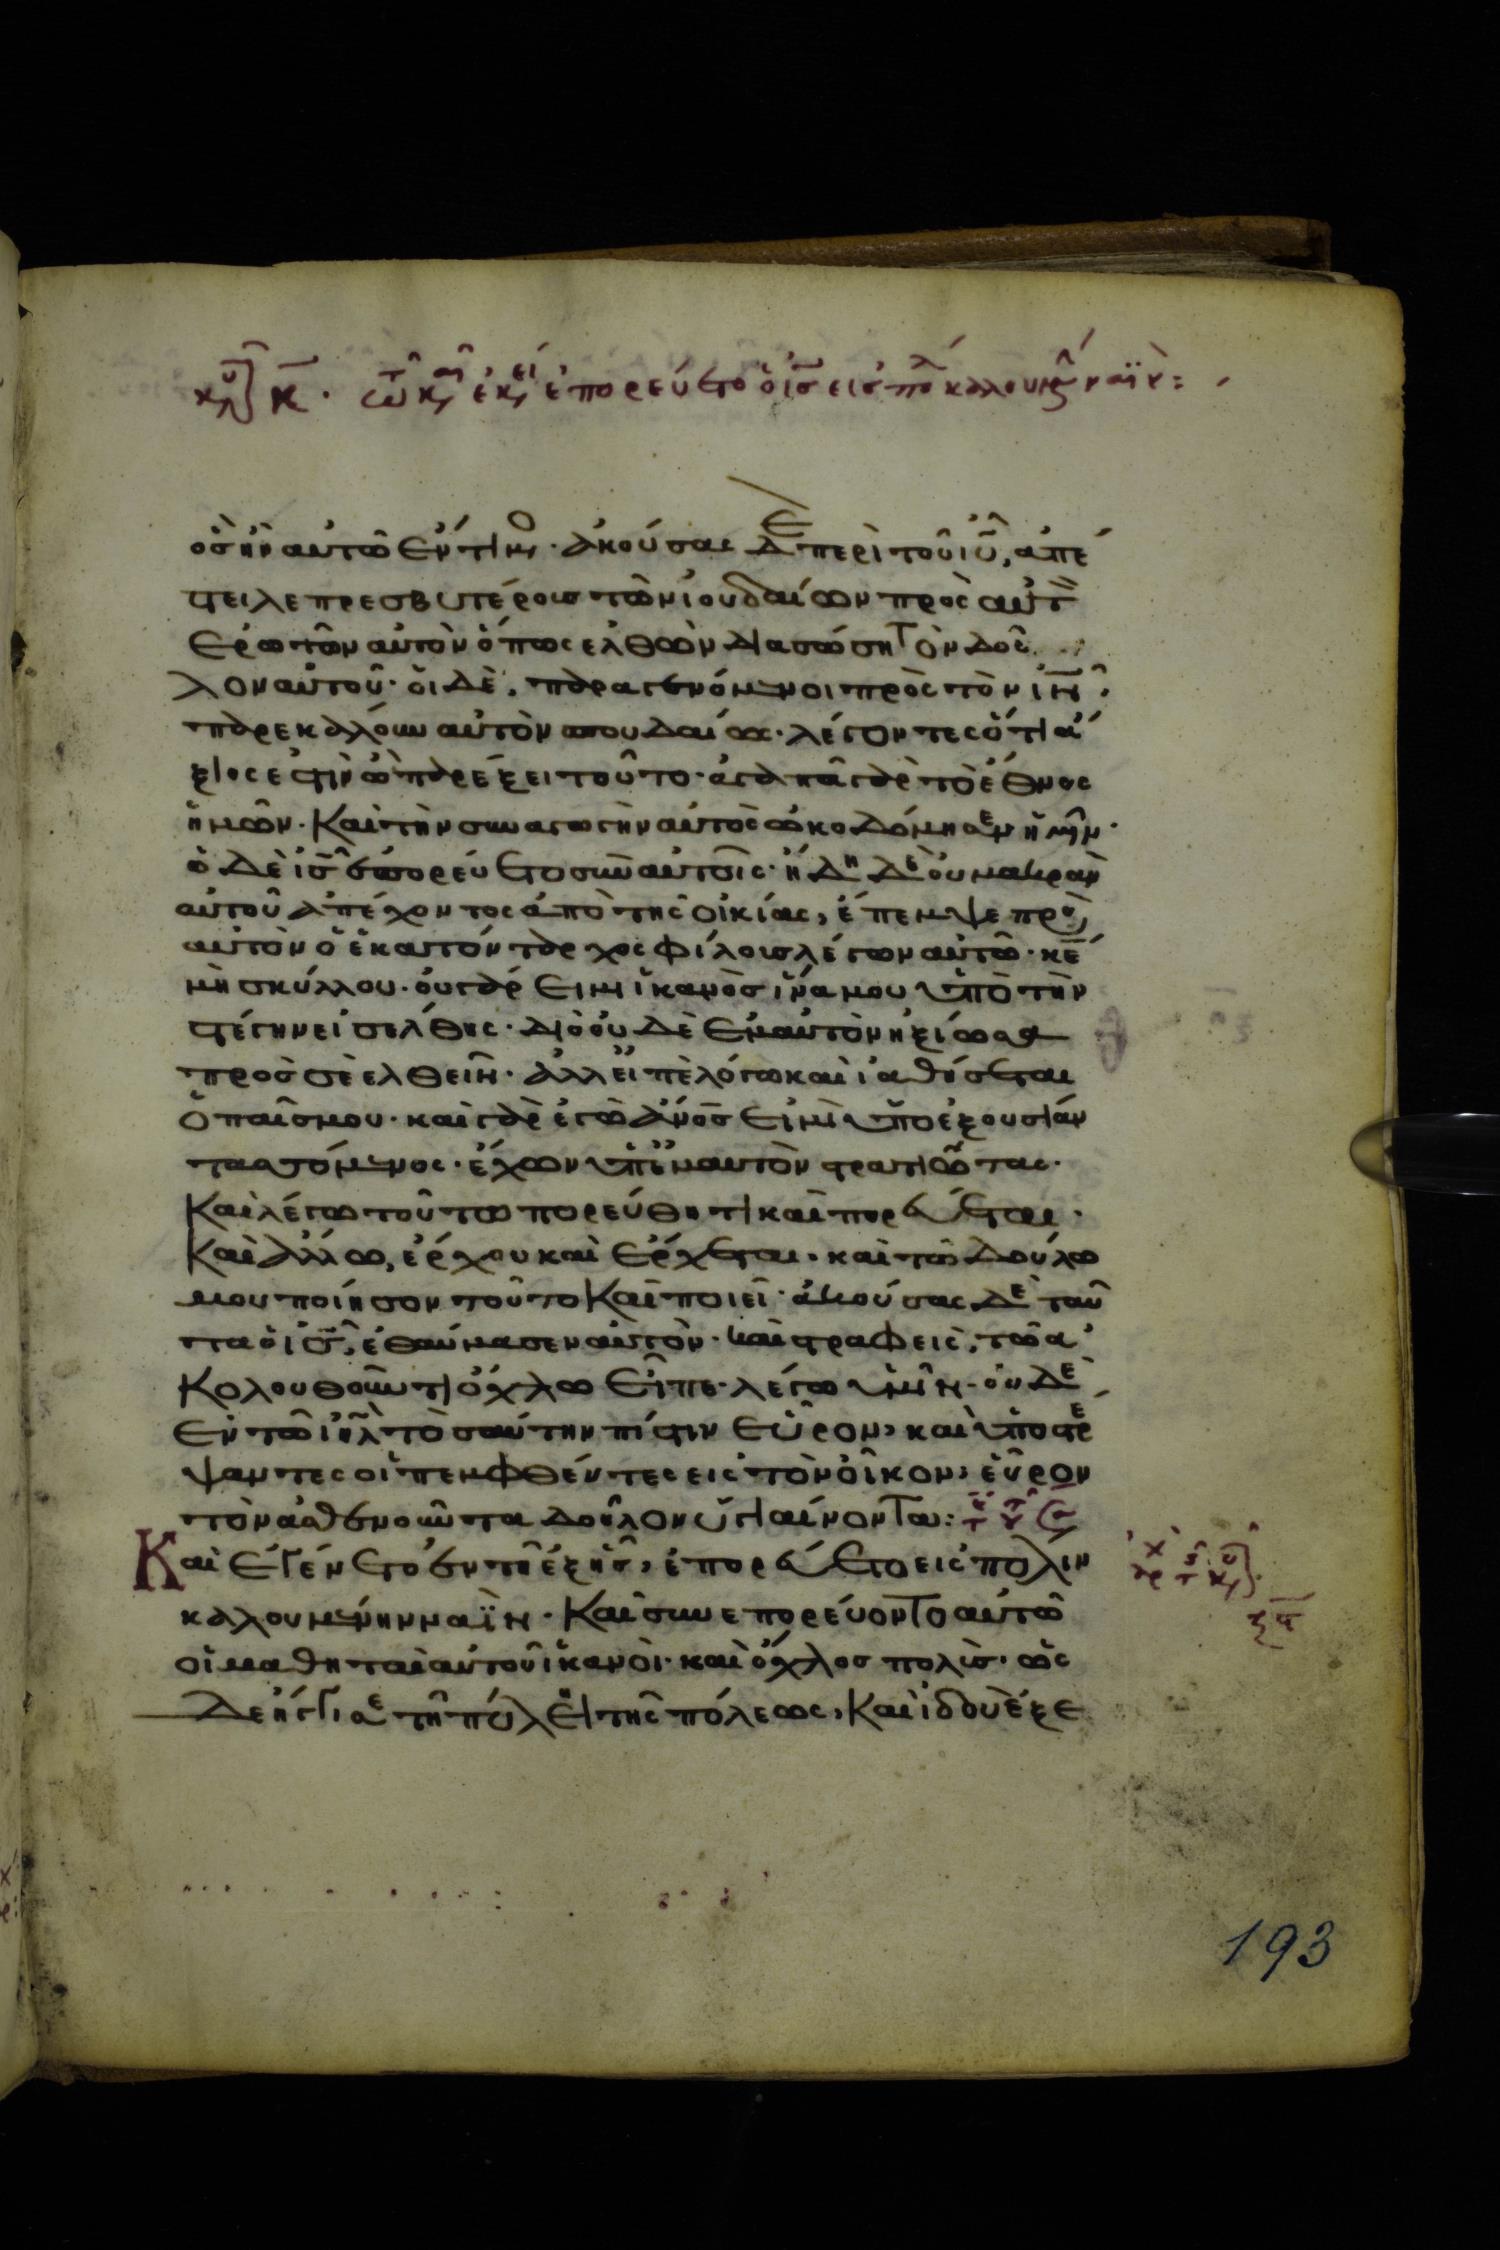 κυ κ · τω κ,αι,ω ἐκ,εί, ἐπορεύετο ὁ ις εις πολ καλουμεν ναϊν :
ὃς ἦν αυτῶ ἐντιμ · ἀκούσας δε περὶ τοῦ ιυ, ἀπέ
στειλε πρεσβυτέρους τῶν ἰουδαίων πρὸς αὐτ
ἐρωτῶν αὐτὸν ὅπως ἐλθὼν διασώση τὸν δοῦ
λον αὐτοῦ · οἱ δὲ, παραγενόμενοι πρὸς τὸν ιν ·
παρεκάλουν αὐτὸν σπουδαίως · λέγοντες ὅτι ἄ
ξιος ἐστὶν ὧ παρέξει τοῦτο · ἀγαπᾶ γὰρ τὸ ἔθνος
ἡμῶν · Καὶ τὴν συναγωγὴν αὐτὸς ὠκοδόμησεν ἡμῖν ·
ὁ δὲ ις ἐπορεύετο σὺν αὐτοῖς · ἤδη δὲ οὐ μακρὰν
αὐτοῦ ἀπέχοντος ἀπὸ της οἰκίας, ἔπεμψε πρὸς
αὐτὸν ὁ ἑκατόνταρχος φίλους λέγων αὐτῶ · κε
μὴ σκύλλου · οὐ γάρ εἰμι ἱκανὸς ἵνα μου ὑπὸ τὴν
στέγην εἰσέλθης · διὸ οὐδὲ ἐμαυτὸν ηξίωσα
πρὸς σὲ ἐλθεῖν · ἀλλ εἰπὲ λόγω καὶ ἰαθήσεται
ὁ παῖς μου · καὶ γὰρ ἐγὼ ἄνος εἰμὶ ὑπο ἐξουσίαν
τασσόμενος · ἔχων ὑπ ἐμαυτὸν στρατιώτας ·
Καὶ λέγω τούτω πορεύθητι καὶ πορεύεται ·
Καὶ ἄλλω, ἔρχου καὶ ἔρχεται · καὶ τῶ δούλω
μου ποίησον τοῦτο Καὶ ποιεῖ · ἀκούσας δὲ ταῦ
τα ὁ ις, ἐθαύμασεν αὐτὸν · καὶ στραφεὶς, τῶ ἀ
κολουθοῦντι ὄχλω εἶπε · λέγω ὑμῖν · οὐδὲ
ἐν τῶ ιηλ τοσαύτην πίστιν εὗρον, καὶ ὑποστρέ
ψαντες οἱ πεμφθέντες εις τὸν οἶκον, εὗρον
τὸν ἀσθενοῦντα δοῦλον ὑγιαίνοντα :
Καὶ ἐγένετο ἐν τῆ ἑξῆς, ἐπορεύετο εἰς πολιν
καλουμένην ναϊν · Καὶ συνεπορεύοντο αὐτῶ
οἱ μαθηταὶ αὐτοῦ ἱκανοὶ · καὶ ὄχλος πολὺς · ὡς
δε ἤγγισε τῆ πύλη τῆς πόλεως, Καὶ ἰδοὺ ἐξε
193